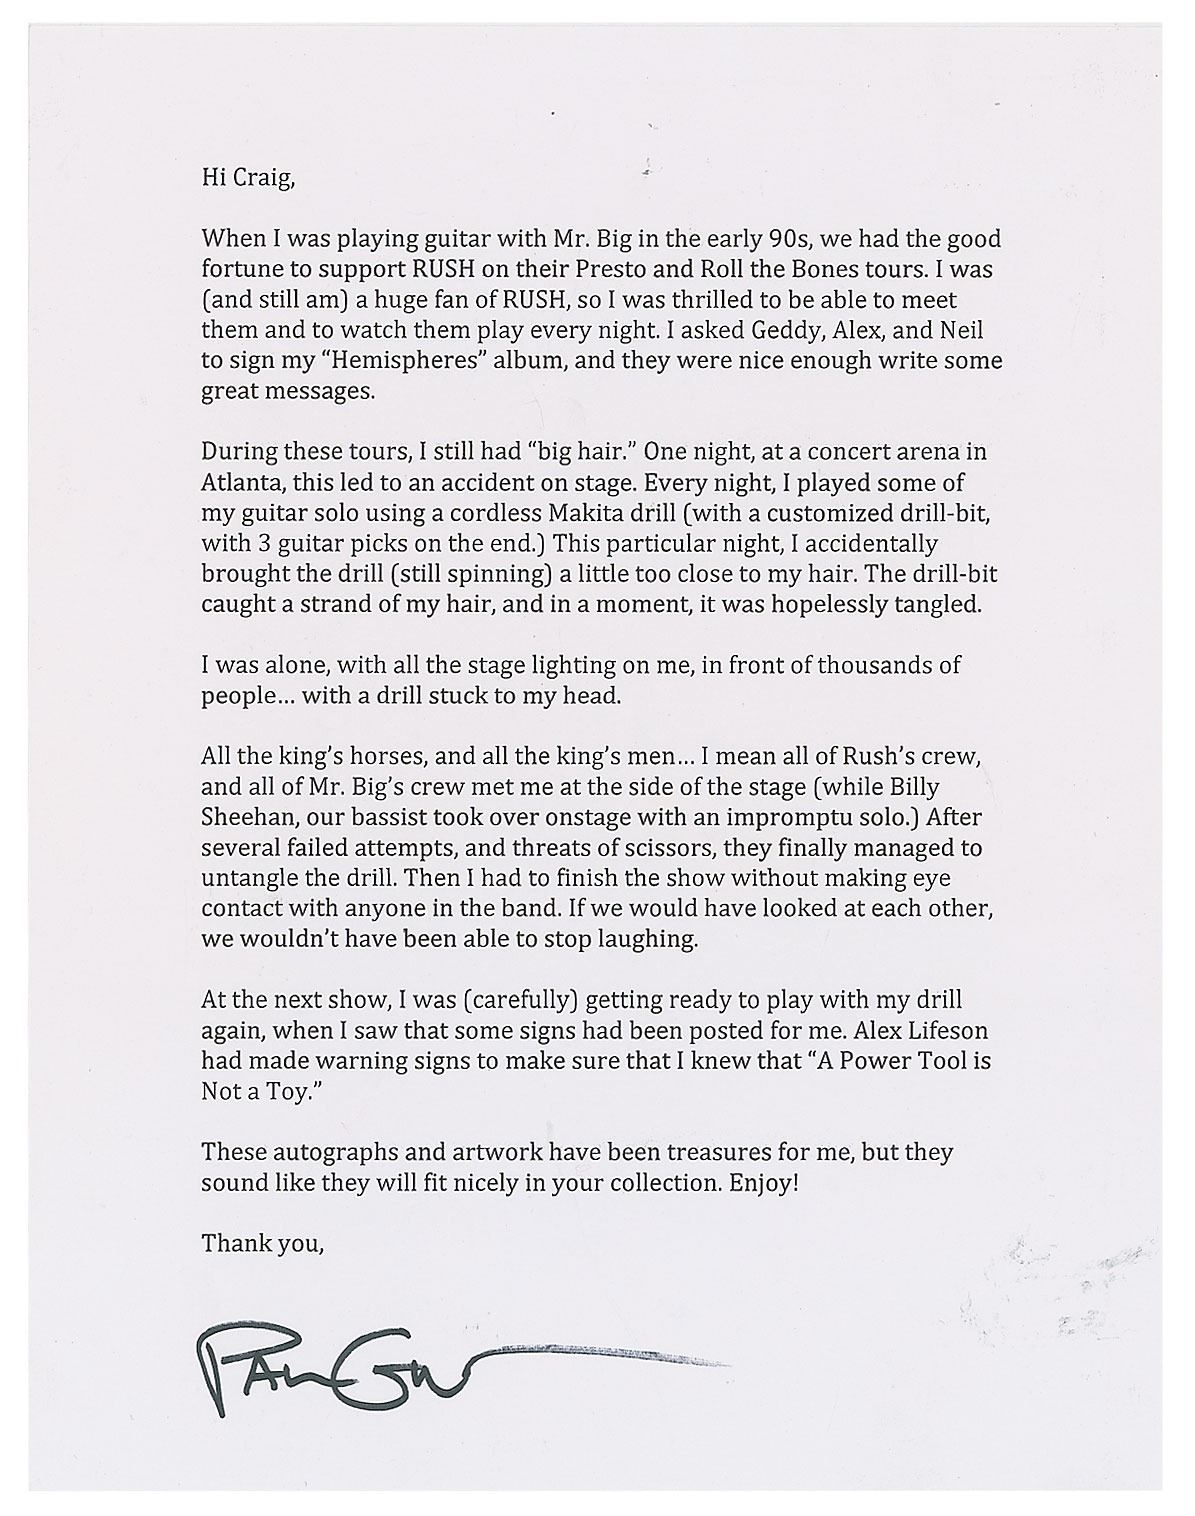 Hi Craig,
When I was playing guitar with Mr. Big in the early 90s, we had the good
fortune to support RUSH on their Presto and Roll the Bones tours. I was
(and still am) a huge fan of RUSH, so I was thrilled to be able to meet
them and to watch them play every night. I asked Geddy, Alex, and Neil
to sign my “Hemispheres” album, and they were nice enough write some
great messages.
During these tours, I still had “big hair.” One night, at a concert arena in
Atlanta, this led to an accident on stage. Every night, I played some of
my guitar solo using a cordless Makita drill (with a customized drill-bit,
with 3 guitar picks on the end.) This particular night, I accidentally
brought the drill (still spinning) a little too close to my hair. The drill-bit
caught a strand of my hair, and in a moment, it was hopelessly tangled.
I was alone, with all the stage lighting on me, in front of thousands of
people... with a drill stuck to my head.
All the king’s horses, and all the king’s men... I mean all of Rush’s crew,
and all of Mr. Big’s crew met me at the side of the stage (while Billy
Sheehan, our bassist took over onstage with an impromptu solo.) After
several failed attempts, and threats of scissors, they finally managed to
untangle the drill. Then I had to finish the show without making eye
contact with anyone in the band. If we would have looked at each other,
we wouldn’t have been able to stop laughing.
At the next show, I was (carefully) getting ready to play with my drill
again, when I saw that some signs had been posted for me. Alex Lifeson
had made warning signs to make sure that I knew that “A Power Tool is
Not a Toy.”
These autographs and artwork have been treasures for me, but they
sound like they will fit nicely in your collection. Enjoy!
Thank you,